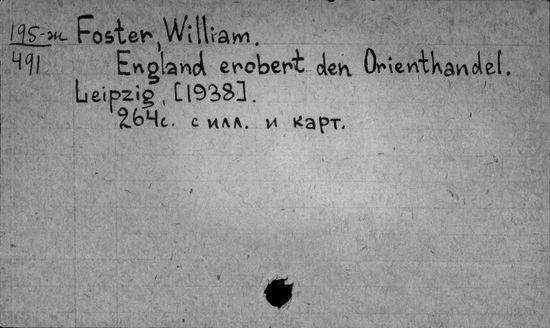 195-м Foster, William.
491 England erobert den Orienthandel.
Leipzig, [1938].
264с. с илл. и карт.